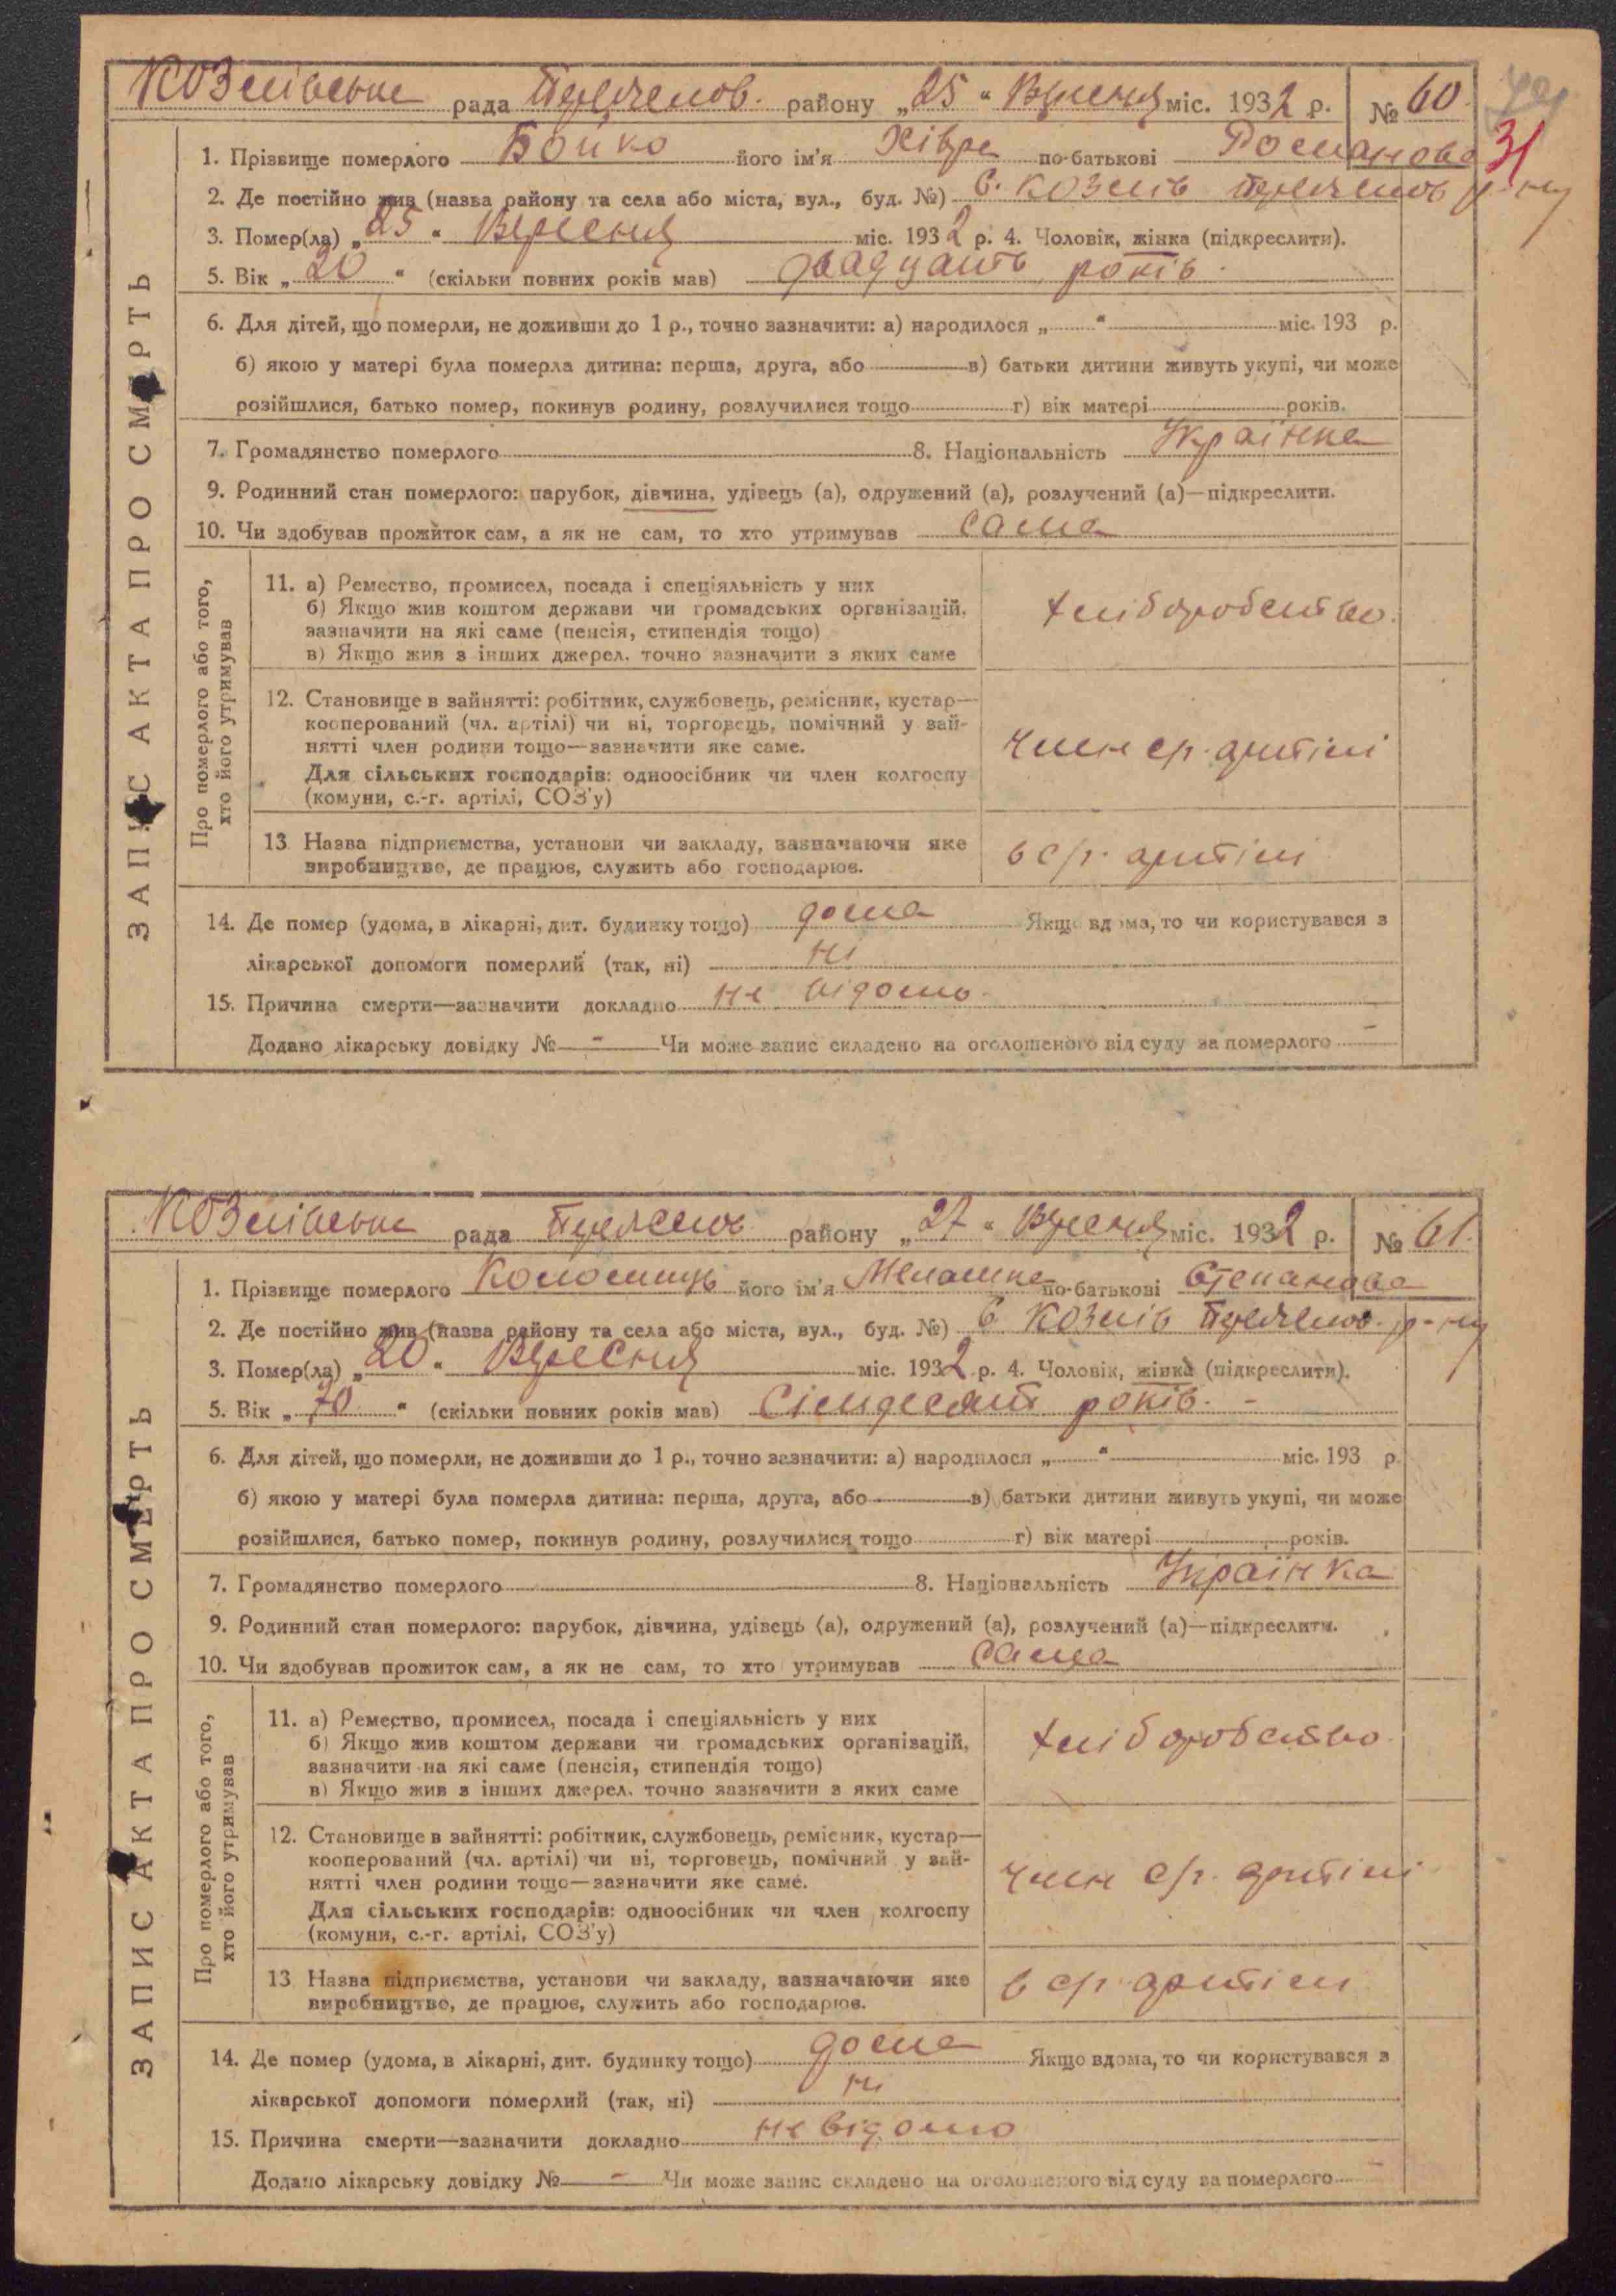 Козлівська рада Переяслов. району „25“ Вересня міс. 1932 р. № 60
31
1. Прізвище померлого Бойко його ім'я Хівря по-батькові Романова
2. Де постійно жив (назва району та села або міста, вул., буд. №) С. Козлів Переяслов р-ну
3. Помер(ла) „25“ Вересня міс. 1932 р. 4. Чоловік, жінка (підкреслити).
5. Вік „20“ (скільки повних років мав) двадцать років.
6. Для дітей, що померли, не доживши до 1 р., точно зазначити: а) народилося „ “ міс. 193 р.
б) якою у матері була померла дитина: перша, друга, або в) батьки дитини живуть укупі, чи може
розійшлися, батько помер, покинув родину, розлучилися тощо г) вік матері років.
7. Громадянство померлого 8. Національність Українка
9. Родинний стан померлого: парубок, дівчина, удівець (а), одружений (а), розлучений (а)—підкреслити.
10. Чи здобував прожиток сам, а як не сам, то хто утримував сама
ЗАПИС АКТА ПРО СМЕРТЬ
Про померлого або того,
хто його утримував
11. а) Ремество, промисел, посада і спеціяльність у них
б) Якщо жив коштом держави чи громадських організацій,
зазначити на які саме (пенсія, стипендія тощо)
в) Якщо жив з інших джерел, точно зазначити з яких саме
хліборобство.
12. Становище в зайнятті: робітник, службовець, ремісник, кустар—
кооперований (чл. артілі) чи ні, торговець, помічний у зай-
нятті член родини тощо—зазначити яке саме.
Для сільських господарів: одноосібник чи член колгоспу
(комуни, с.-г. артілі, СОЗ'у)
член с/г. артілі
13 Назва підприємства, установи чи закладу, зазначаючи яке
виробництво, де працює, служить або господарює.
в с/г. артілі
14. Де помер (удома, в лікарні, дит. будинку тощо) дома Якщо вдома, то чи користувався з
лікарської допомоги померлий (так, ні) ні
15. Причина смерти—зазначити докладно не відомо.
Додано лікарську довідку № - Чи може запис складено на оголошеного від суду за померлого -
Козлівська рада Переяслов району „27“ Вересня міс. 1932 р. № 61.
1. Прізвище померлого Коломиець його ім'я Мелашка по-батькові Степанова
2. Де постійно жив (назва району та села або міста, вул., буд. №) С Козлів Переяслов. р-ну
3. Помер(ла) „26“ Вересня міс. 1932 р. 4. Чоловік, жінка (підкреслити).
5. Вік „70“ (скільки повних років мав) Сімдесят років. -
6. Для дітей, що померли, не доживши до 1 р., точно зазначити: а) народилося „ “ міс. 193 р.
б) якою у матері була померла дитина: перша, друга, або в) батьки дитини живуть укупі, чи може
розійшлися, батько помер, покинув родину, розлучилися тощо г) вік матері років.
7. Громадянство померлого 8. Національність Українка
9. Родинний стан померлого: парубок, дівчина, удівець (а), одружений (а), розлучений (а)—підкреслити.
10. Чи здобував прожиток сам, а як не сам, то хто утримував Сама
ЗАПИС АКТА ПРО СМЕРТЬ
Про померлого або того,
хто його утримував
11. а) Ремество, промисел, посада і спеціяльність у них
б) Якщо жив коштом держави чи громадських організацій,
зазначити на які саме (пенсія, стипендія тощо)
в) Якщо жив з інших джерел, точно зазначити з яких саме
хліборобство.
12. Становище в зайнятті: робітник, службовець, ремісник, кустар—
кооперований (чл. артілі) чи ні, торговець, помічний у зай-
нятті член родини тощо—зазначити яке саме.
Для сільських господарів: одноосібник чи член колгоспу
(комуни, с.-г. артілі, СОЗ'у)
член с/г. артілі
13 Назва підприємства, установи чи закладу, зазначаючи яке
виробництво, де працює, служить або господарює.
в с/г. артілі
14. Де помер (удома, в лікарні, дит. будинку тощо) дома Якщо вдома, то чи користувався з
лікарської допомоги померлий (так, ні) ні
15. Причина смерти—зазначити докладно не відомо
Додано лікарську довідку № - Чи може запис складено на оголошеного від суду за померлого -